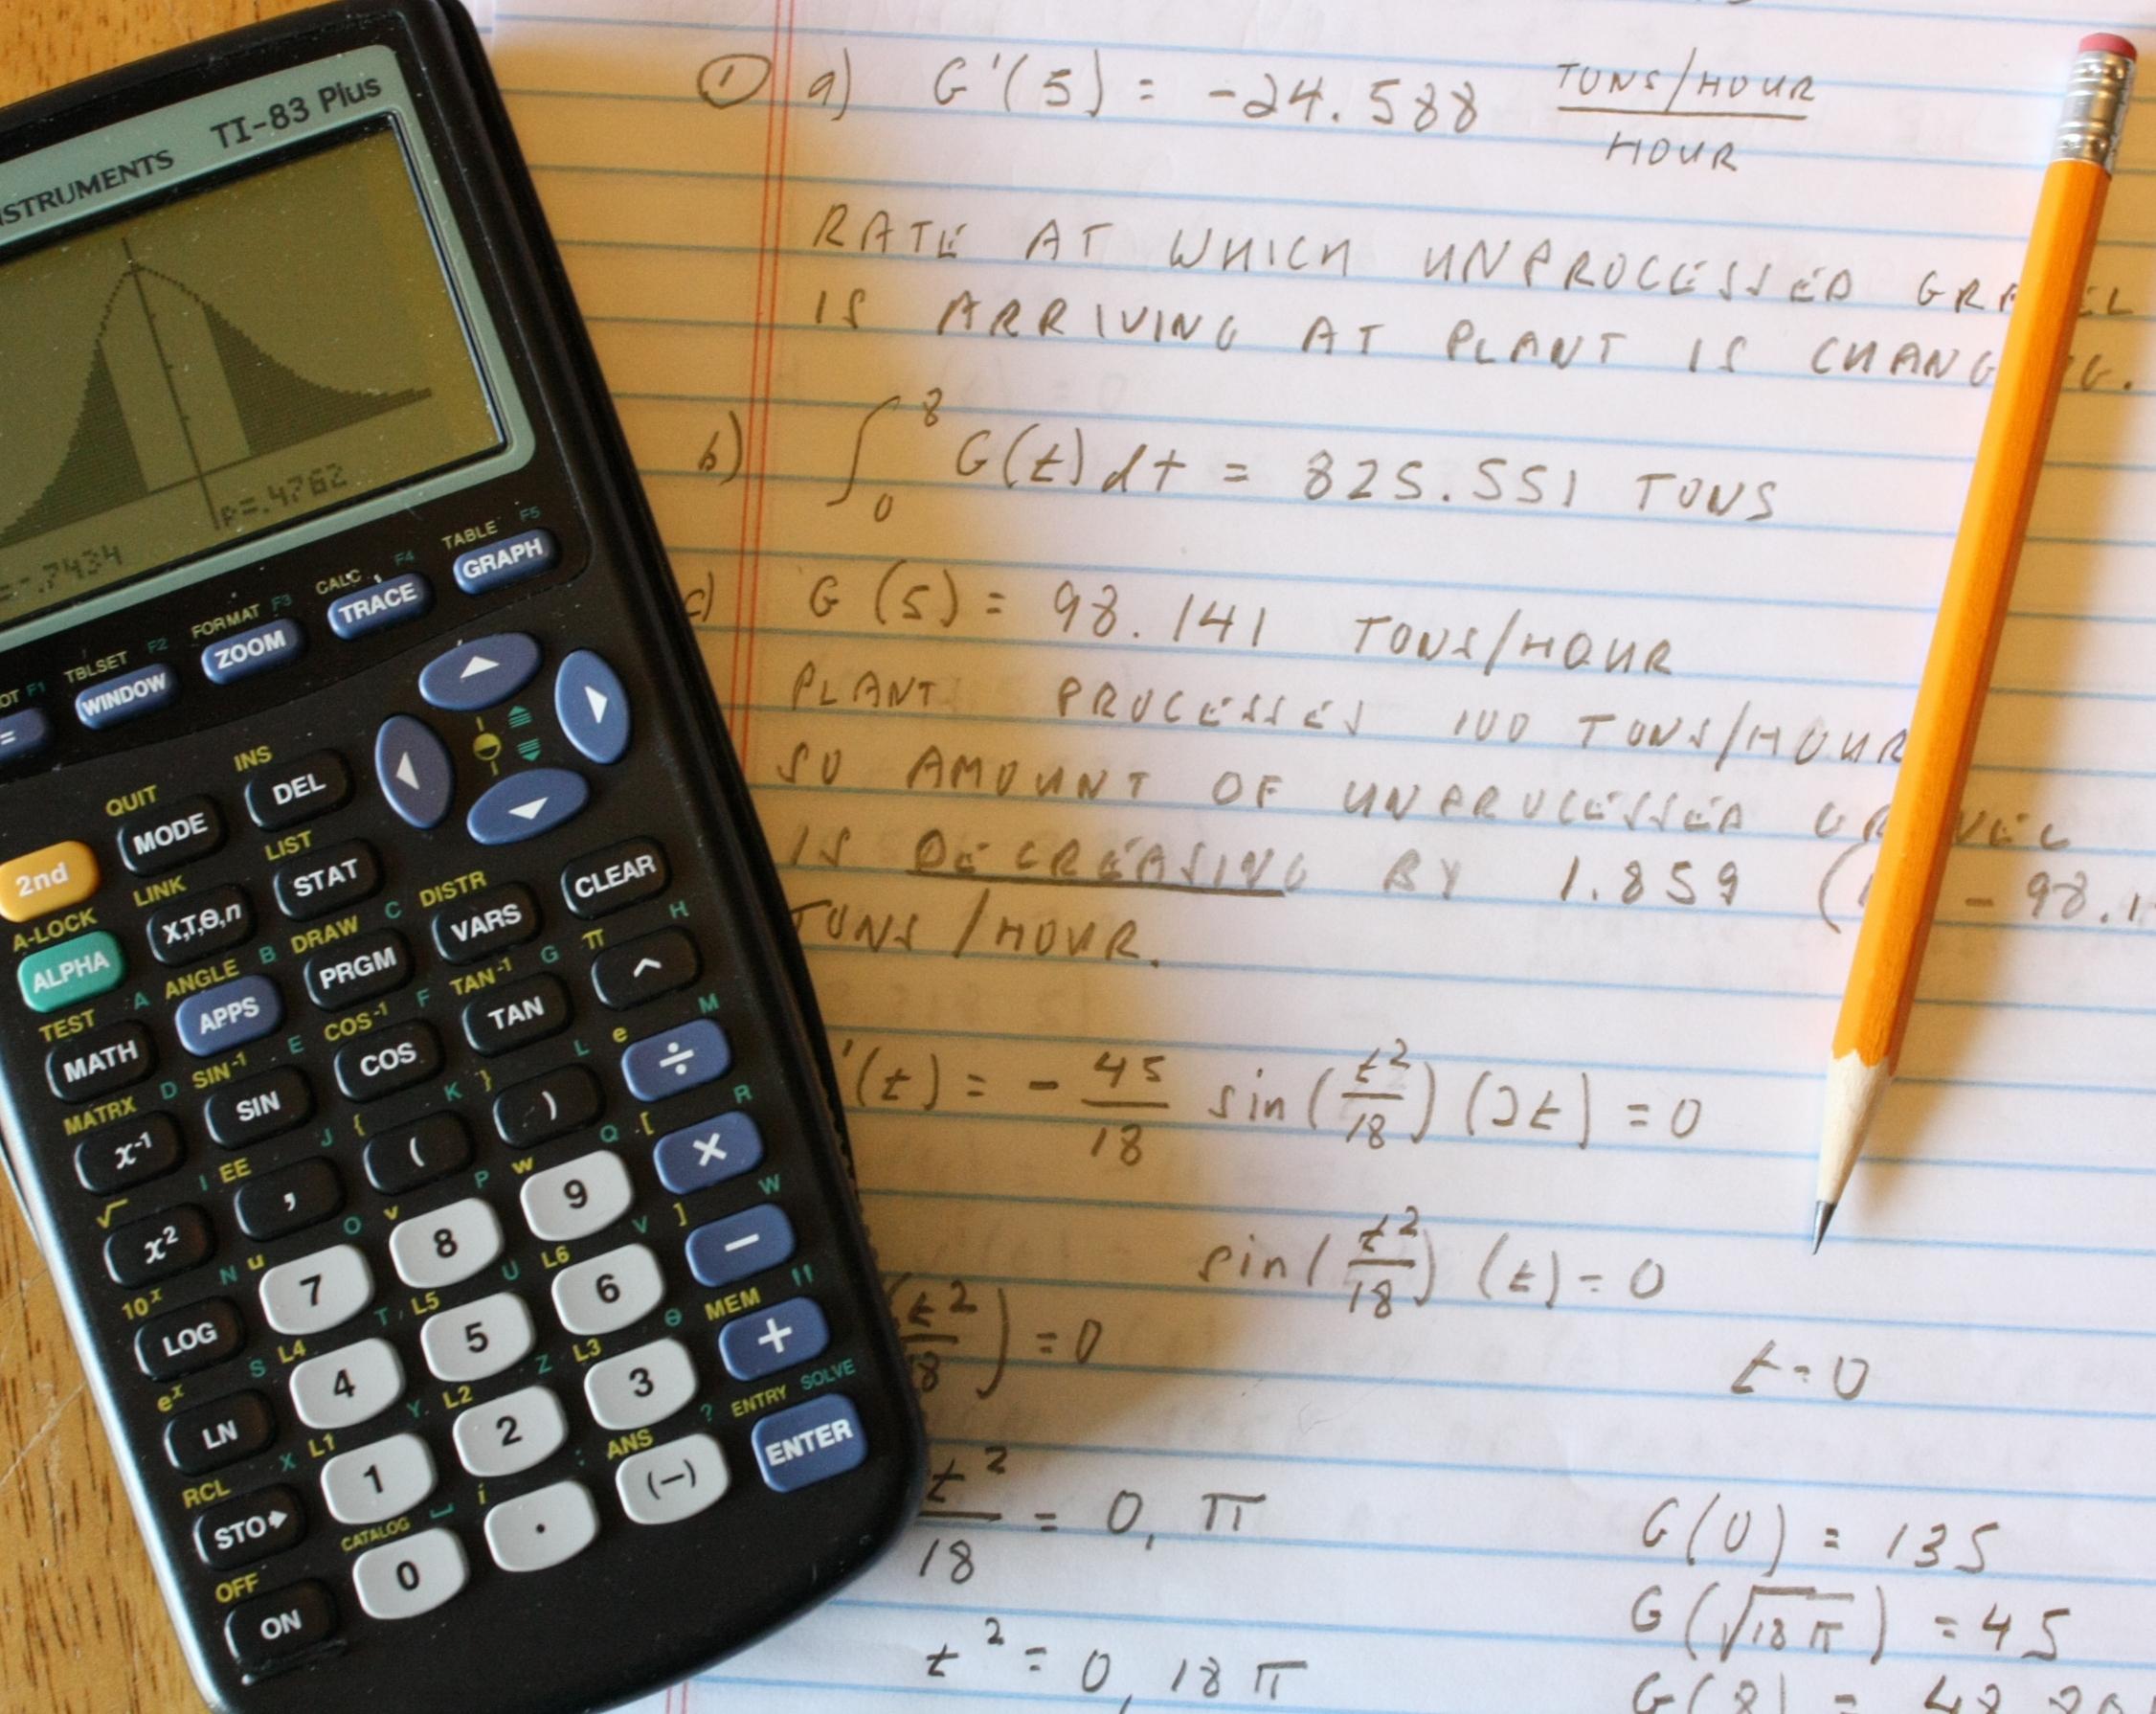 INSTRUMENTS TI-83 Plus
p=.4762
=-.7434
TABLE F5
CALC F4
FORMAT F3
TBLSET F2
F1
GRAPH
TRACE
ZOOM
WINDOW
=
QUIT INS
2nd MODE DEL
A-LOCK LINK LIST
ALPHA X,T,Θ,n STAT
TEST A ANGLE B DRAW C DISTR
MATH APPS PRGM VARS CLEAR
MATRX D SIN-1 E COS-1 F TAN-1 G π H
x-1 SIN COS TAN ^
√ I EE J { K } L e M
x2 , ( ) ÷
10x N u O v P w Q [ R
LOG 7 8 9 ×
ex S L4 T L5 U L6 V ] W
LN 4 5 6 −
RCL X L1 Y L2 Z L3 θ MEM "
STO▸ 1 2 3 +
OFF CATALOG ⎵ i : ANS ? ENTRY SOLVE
ON 0 . (−) ENTER
① a) G'(5) = -24.588 TONS/HOUR
HOUR
RATE AT WHICH UNPROCESSED
IS ARRIVING AT PLANT IS
b) ∫₀⁸ G(t) dt = 825.551 TONS
c) G(5) = 98.141 TONS/HOUR
PLANT PROCESSES 100 TONS/HOUR
SO AMOUNT OF UNPROCESSED
IS DECREASING BY 1.859 ( - 98.1
TONS/HOUR.
'(t) = - 45/18 sin(t²/18) (2t) = 0
sin(t²/18) (t) = 0
(t²/18) = 0
t = 0
t²/18 = 0, π
G(0) = 135
G(√18π) = 45
t² = 0, 18π
G(8) =